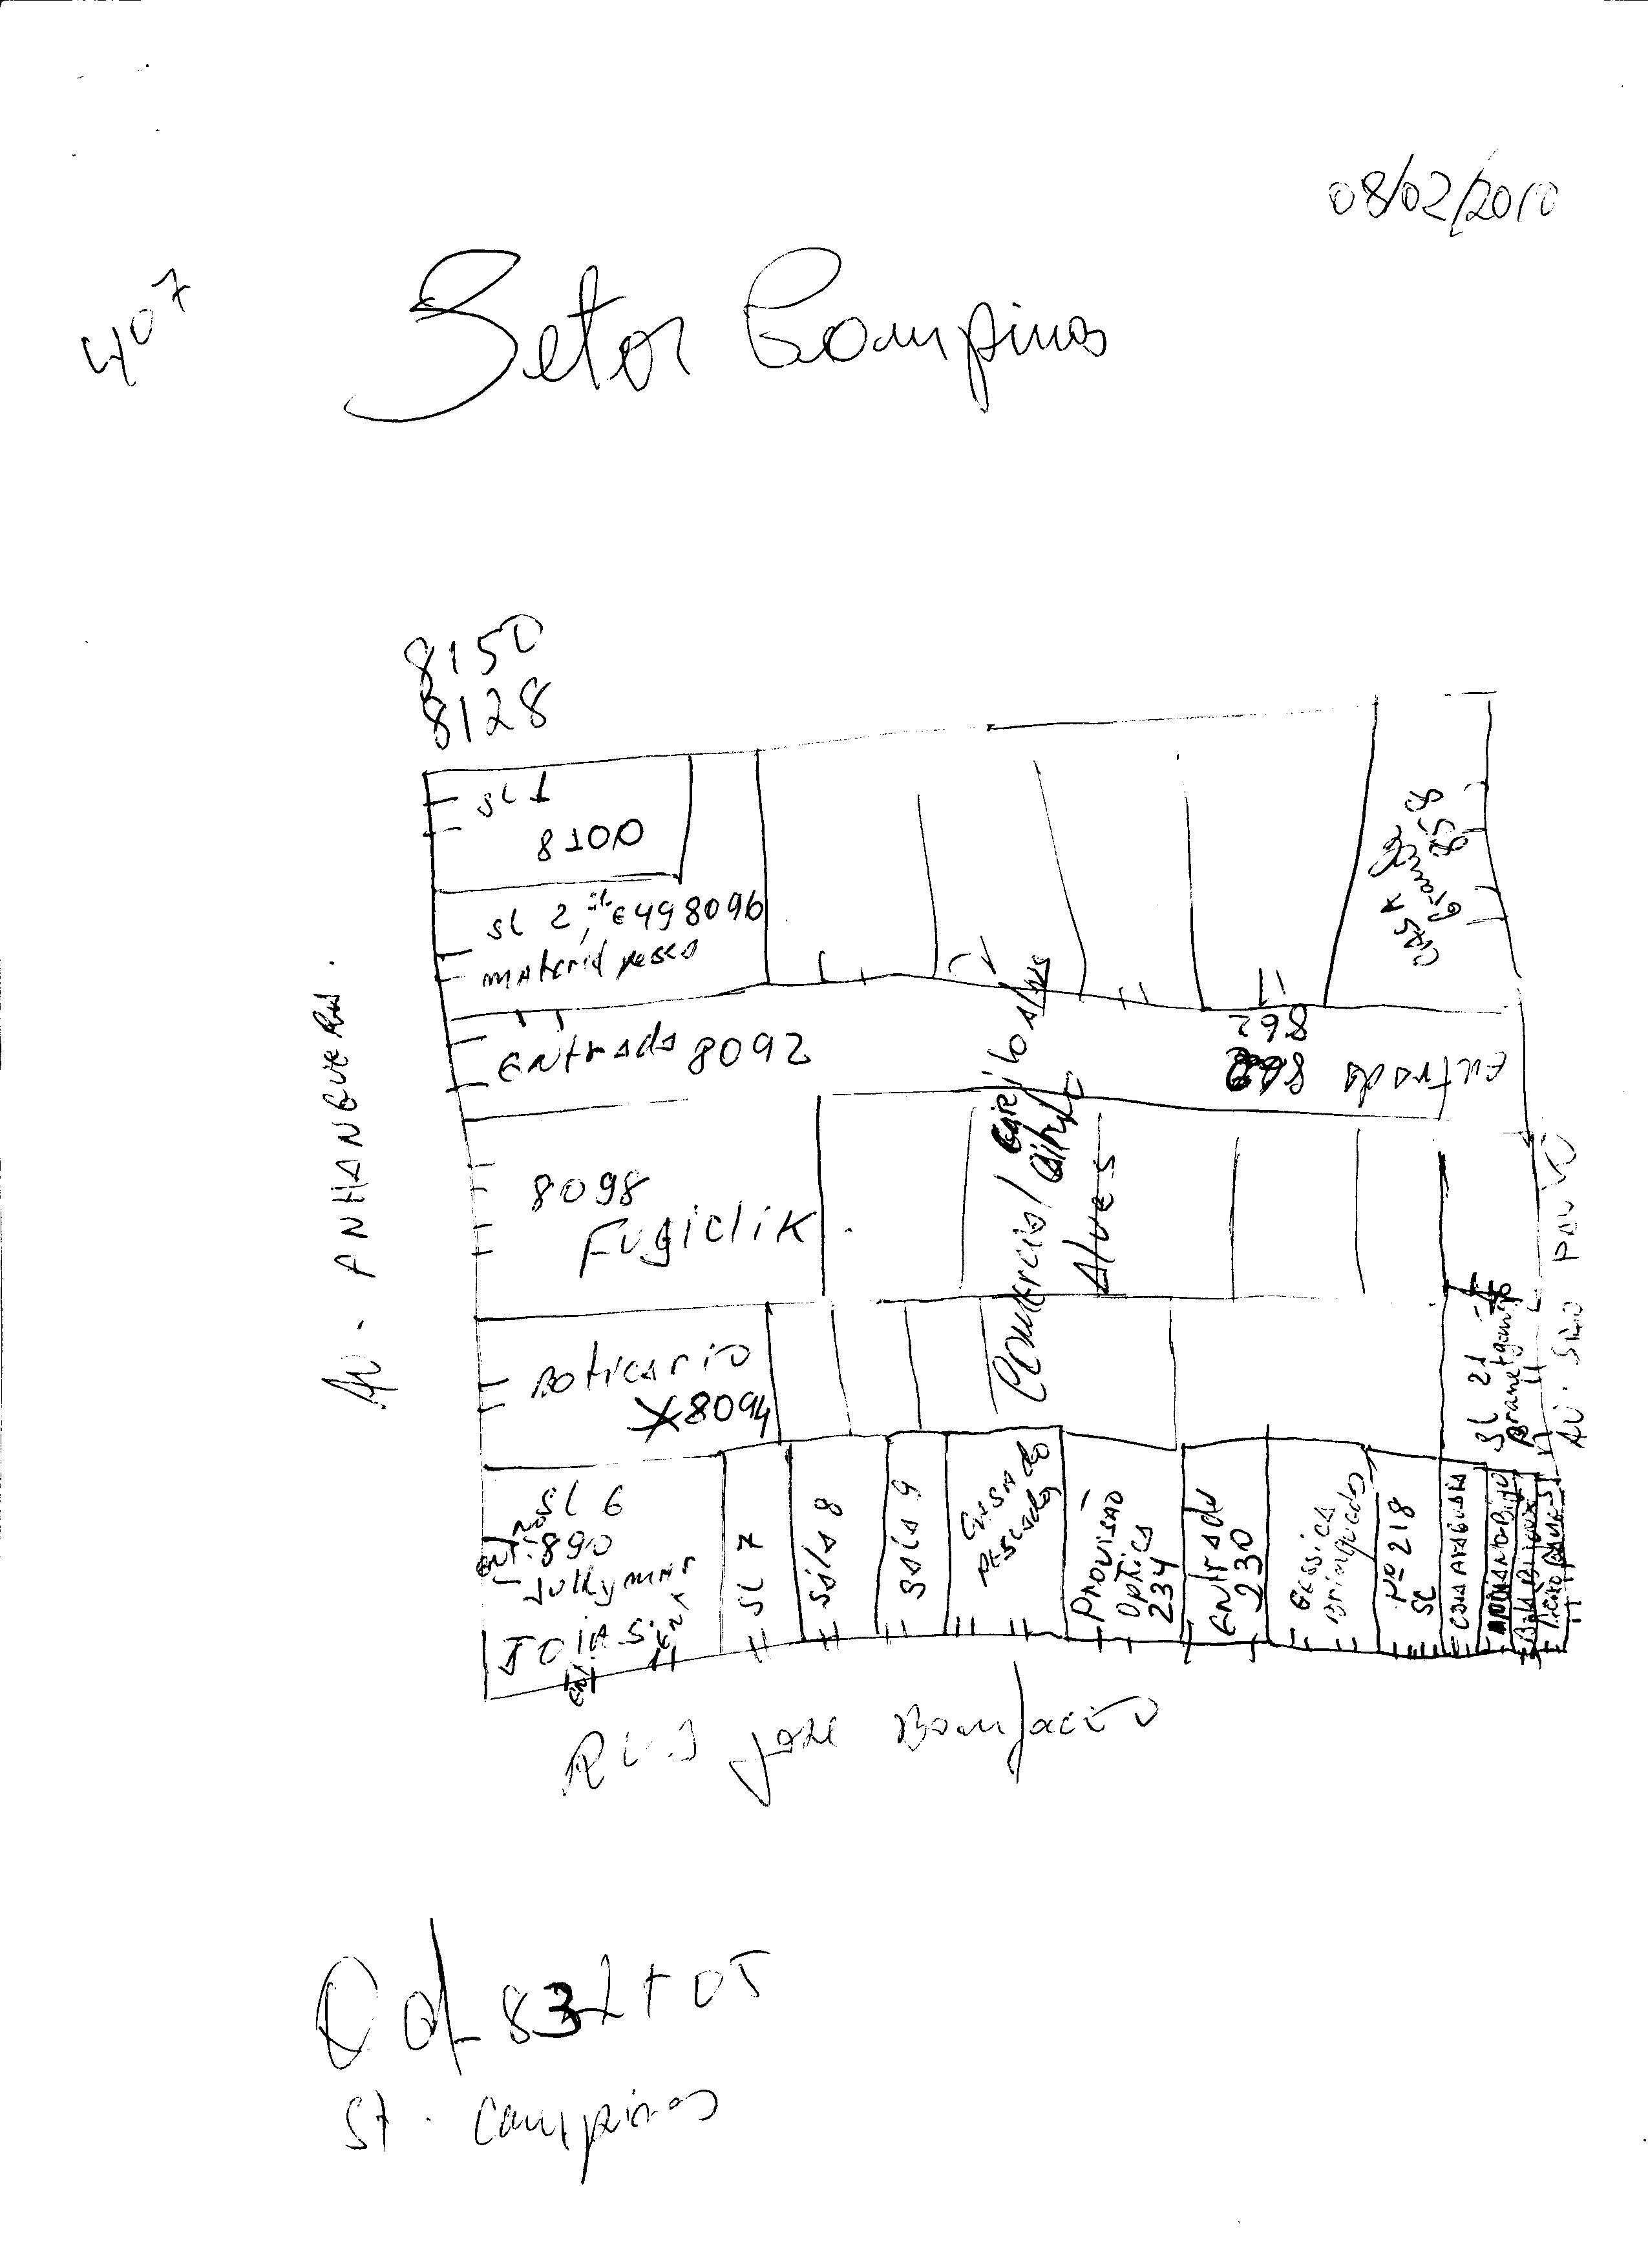 08/02/2010
407
Setor Campinas
8150
8128
sl 1
8100
sl 2, 498096
material pesca
858
Entrada 8092
862
Entrada
Av. ANHANGUERA
8098
Fugiclik
Comercial
Alves
AV. SÃO PAULO
Boticario
8094
SL 21
sl 6
890
Jullymar
JOIAS
SL 7
sala 8
sala 9
CASA do
Pescador
Provisão
optica
234
Entrada
230
Gessica
Brinquedos
Nº 218
SL
Rua Jose Bonifacio
Qd 83 Lt 05
St. Campinas